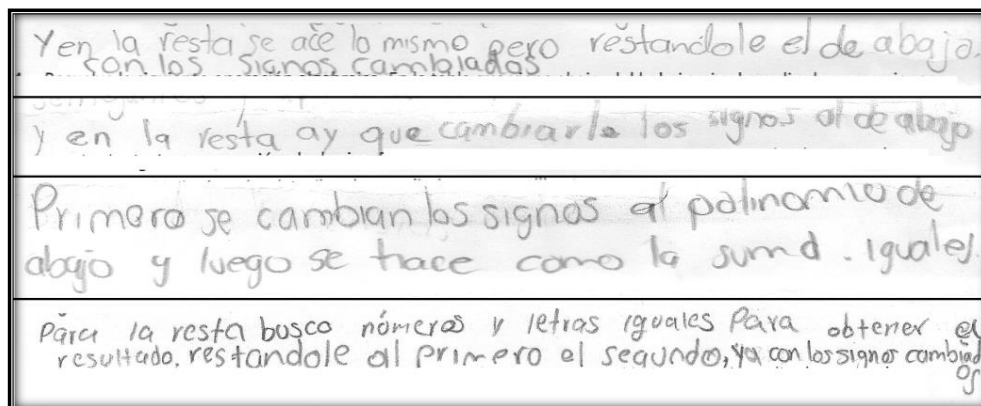 Y en la resta se ace lo mismo pero restandole el de abajo.
con los signos cambiados
y en la resta ay que cambiarle los signos al de abajo
Primero se cambian los signos al polinomio de
abajo y luego se hace como la suma. iguales.
Para la resta busco números y letras iguales Para obtener el
resultado, restandole al primero el segundo, ya con los signos cambiad
os